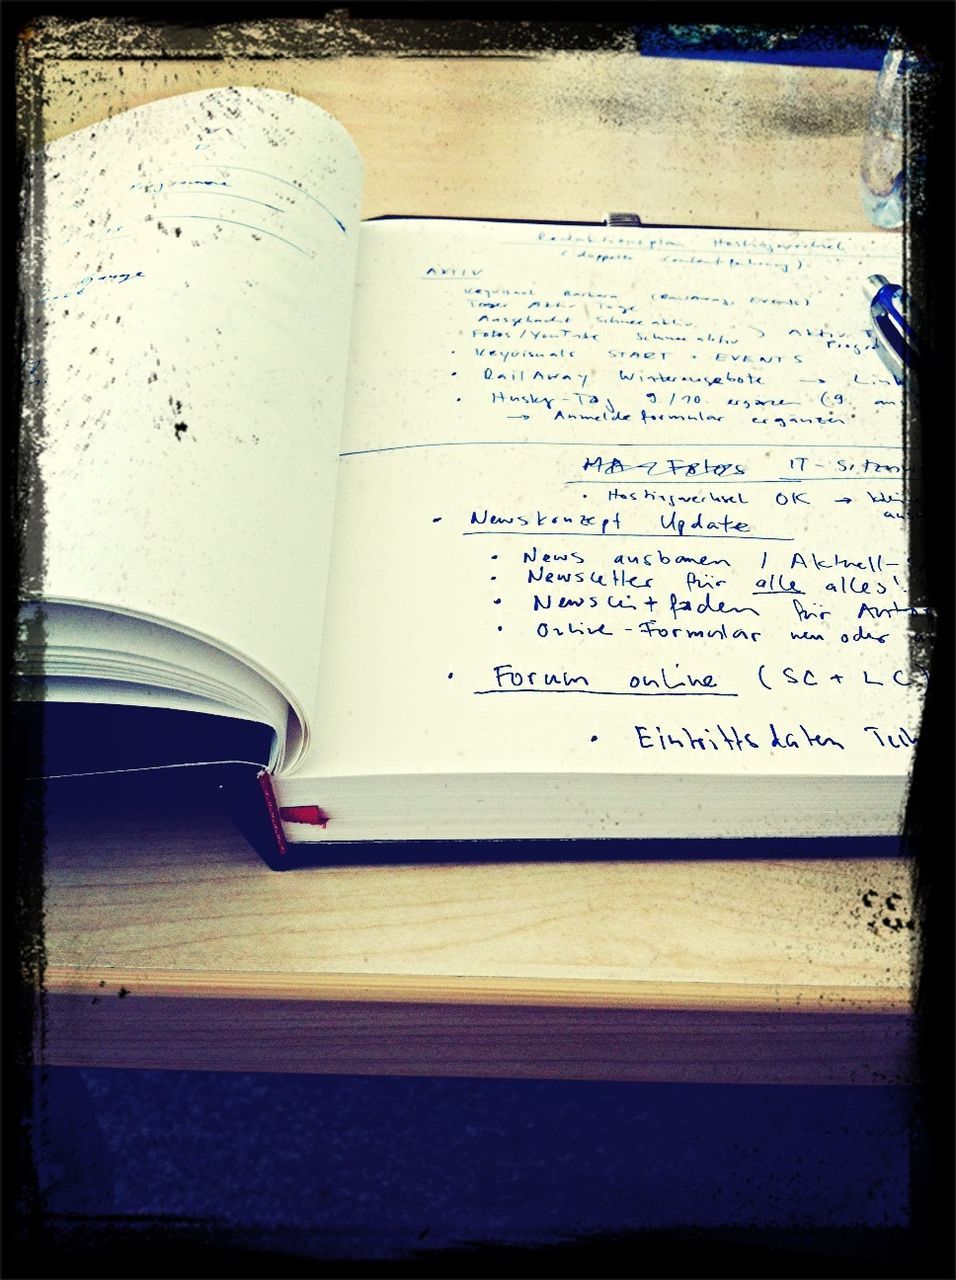 Programme
Redaktionsplan Hostingwechsel
(doppelte Contentführung)
AKTIV
Keyvisual Barbara (RailAway, Events)
Tage
Ausgebucht Schnee aktiv
Fotos/YouTube Schneeaktiv > Aktiv
• Keyvisuals START + EVENTS
• RailAway Winterangebote →
• Husky-Tag 9./10. ergänzen (9.
→ Anmeldeformular ergänzen
MA - Fotos IT-
• Hostingwechsel OK →
• Newskonzept Update
• News ausbauen / Aktuell-
• Newsletter für alle alles!
• Newsleitfaden für
• Online-Formular neu oder
• Forum online (SC + LC)
• Eintrittsdaten